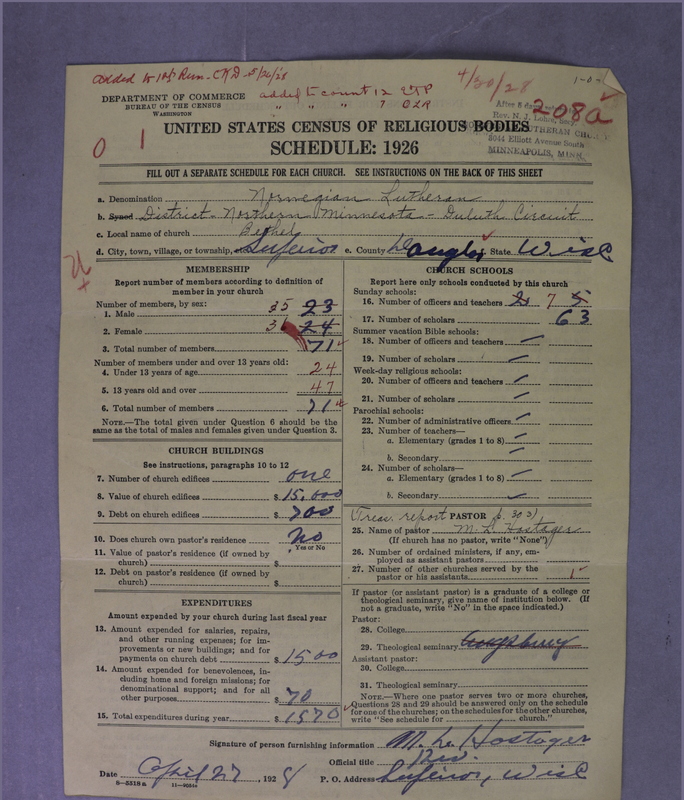 added to 1st Run - CKD - 5/26/28
4/30/28
1-0-
DEPARTMENT OF COMMERCE
BUREAU OF THE CENSUS
WASHINGTON
added to count 12 ETP
" " " 7 OLR
After 5 days
208a
Rev. N. J. Lohre, Secy.
LUTHERAN CHURCH
Elliott Avenue South
MINNEAPOLIS, MINN.
0 1
UNITED STATES CENSUS OF RELIGIOUS BODIES
SCHEDULE: 1926
FILL OUT A SEPARATE SCHEDULE FOR EACH CHURCH. SEE INSTRUCTIONS ON THE BACK OF THIS SHEET
a. Denomination Norwegian Lutheran
b. Synod District - Northern Minnesota - Duluth Circuit
c. Local name of church Bethel
d. City, town, village, or township, Superior e. County Douglas State Wisc
MEMBERSHIP
Report number of members according to definition of
member in your church
Number of members, by sex:
1. Male 35 23
2. Female 36 24
3. Total number of members 71
Number of members under and over 13 years old:
4. Under 13 years of age 24
5. 13 years old and over 47
6. Total number of members 71
NOTE.—The total given under Question 6 should be
the same as the total of males and females given under Question 3.
CHURCH BUILDINGS
See instructions, paragraphs 10 to 12
7. Number of church edifices one
8. Value of church edifices $ 15,000
9. Debt on church edifices $ 700
10. Does church own pastor's residence? No
Yes or No
11. Value of pastor's residence (if owned by
church) $
12. Debt on pastor's residence (if owned by
church) $
EXPENDITURES
Amount expended by your church during last fiscal year
13. Amount expended for salaries, repairs,
and other running expenses; for im-
provements or new buildings; and for
payments on church debt $ 1500
14. Amount expended for benevolences, in-
cluding home and foreign missions; for
denominational support; and for all
other purposes $ 70
15. Total expenditures during year $ 1570
CHURCH SCHOOLS
Report here only schools conducted by this church
Sunday schools:
16. Number of officers and teachers 2 7 5
17. Number of scholars 63
Summer vacation Bible schools:
18. Number of officers and teachers —
19. Number of scholars —
Week-day religious schools:
20. Number of officers and teachers —
21. Number of scholars —
Parochial schools:
22. Number of administrative officers —
23. Number of teachers—
a. Elementary (grades 1 to 8) —
b. Secondary —
24. Number of scholars—
a. Elementary (grades 1 to 8) —
b. Secondary
(Treas. report p. 303) PASTOR
25. Name of pastor M. L. Hostager
(If church has no pastor, write "None")
26. Number of ordained ministers, if any, em-
ployed as assistant pastors
27. Number of other churches served by the
pastor or his assistants 1
If pastor (or assistant pastor) is a graduate of a college or
theological seminary, give name of institution below. (If
not a graduate, write "No" in the space indicated.)
Pastor:
28. College
29. Theological seminary Augsburg
Assistant pastor:
30. College
31. Theological seminary
NOTE.—Where one pastor serves two or more churches,
Questions 28 and 29 should be answered only on the schedule
for one of the churches; on the schedules for the other churches,
write "See schedule for church."
Signature of person furnishing information M. L. Hostager
Official title Rev.
Date April 27, 1928
P. O. Address Superior, Wisc
8—5318a 11—9051